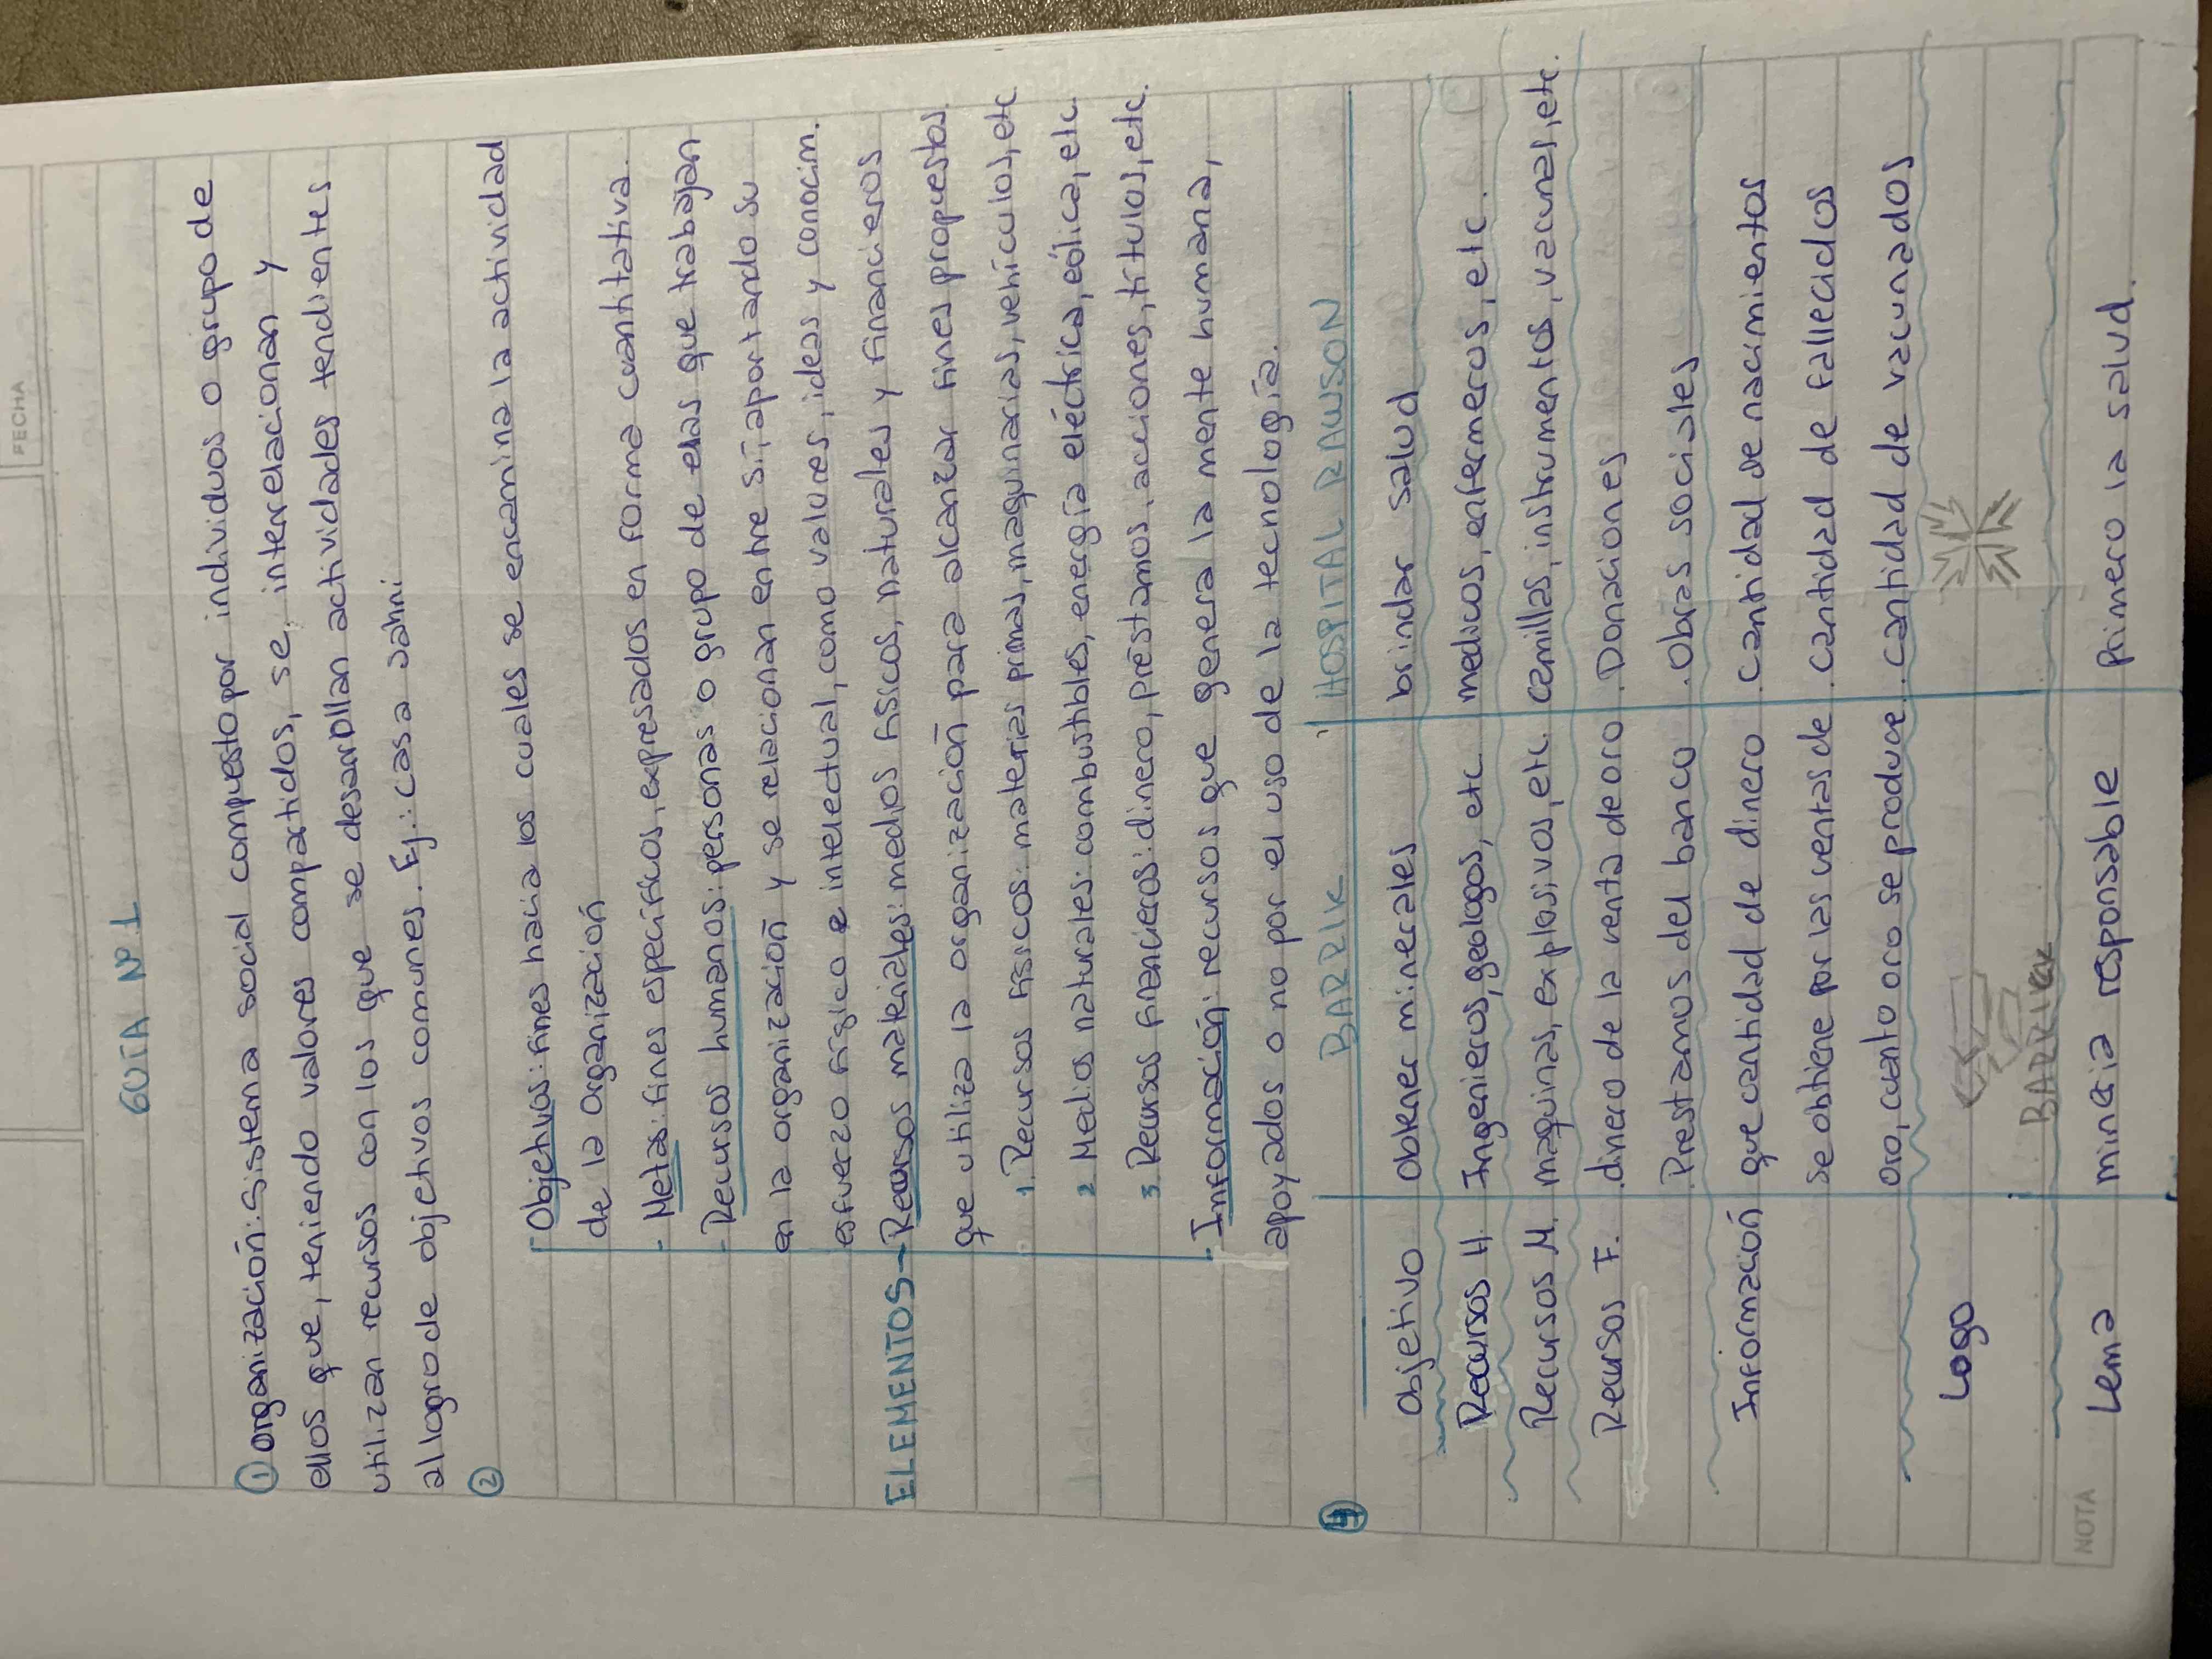 FECHA
GUIA Nº 1
① Organización: Sistema social compuesto por individuos o grupo de
ellos que, teniendo valores compartidos, se interrelacionan y
utilizan recursos con los que se desarrollan actividades tendientes
al logro de objetivos comunes. Ej.: casa
②
- Objetivos: fines hacia los cuales se encamina la actividad
de la organización
- Metas: fines específicos, expresados en forma cuantitativa.
- Recursos humanos: personas o grupo de ellas que trabajan
en la organización y se relacionan entre sí, aportando su
esfuerzo físico e intelectual, como valores, ideas y conocim.
ELEMENTOS - Recursos materiales: medios físicos, naturales y financieros
que utiliza la organización para alcanzar fines propuestos
1. Recursos físicos: materias primas, maquinarias, vehículos, etc
2 Medios naturales: combustibles, energía eléctrica, eólica, etc.
3. Recursos financieros: dinero, préstamos, acciones, títulos, etc.
- Información: recursos que genera la mente humana,
apoyados o no por el uso de la tecnología.
④ BARRIK HOSPITAL RAWSON
Objetivo obtener minerales brindar salud
Recursos H. Ingenieros, geologos, etc. medicos, enfermeros, etc.
Recursos M. maquinas, explosivos, etc. camillas, instrumentos, vacunas, etc.
Recursos F. .dinero de la venta de oro .Donaciones
.Prestamos del banco .Obras sociales
Información que cantidad de dinero .cantidad de nacimientos
se obtiene por las ventas de .cantidad de fallecidos
oro, cuanto oro se produce. .cantidad de vacunados
Logo
BARRICK
Lema minería responsable Primero la salud.
NOTA